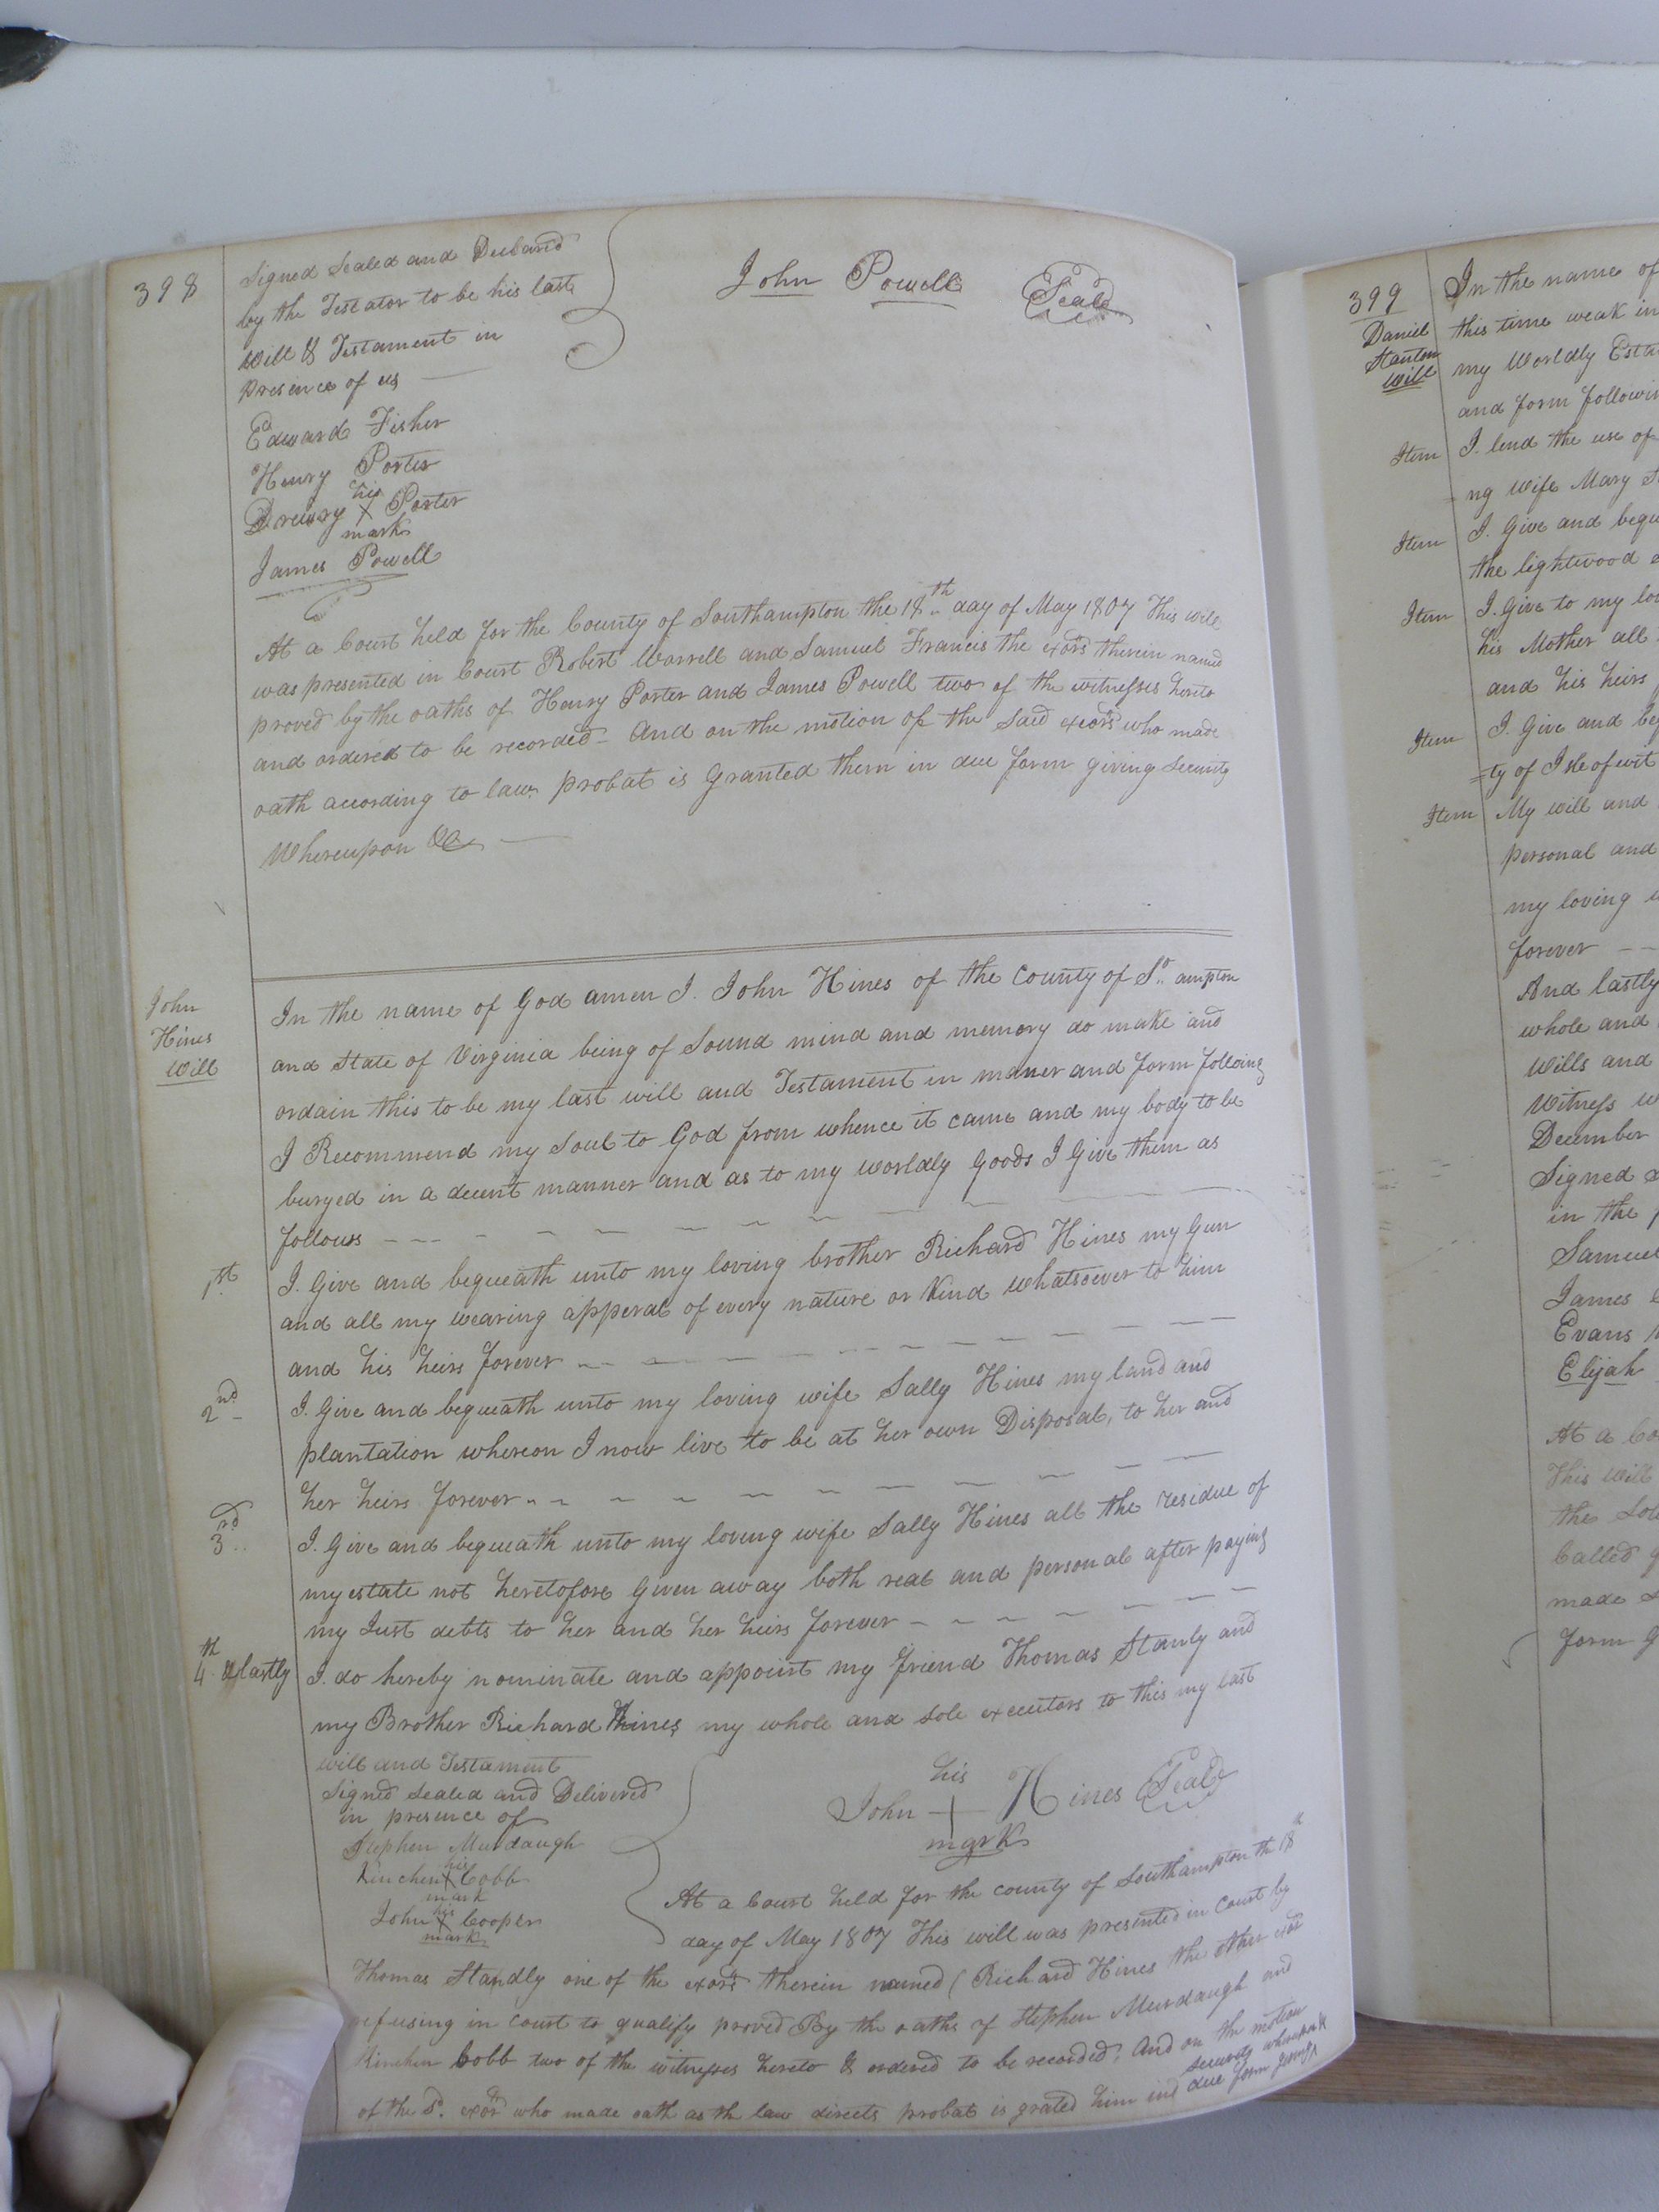 398
Signed Sealed and Declared
by the Testator to be his last
Will & Testament in
presence of us
John Powell Seal
Edward Fisher
Henry Porter
his
Drewry X Porter
mark
James Powell
At a Court held for the County of Southampton the 18th day of May 1807 This will
was presented in Court Robert Worrell and Samuel Francis the exors therein named
proved by the oaths of Henry Porter and James Powell two of the witnesses hereto
and ordered to be recorded - And on the motion of the said exors who made
oath according to law probat is Granted them in due form giving security
Whereupon &c
John
Hines
Will
In the name of God amen I. John Hines of the County of So ampton
and State of Virginia being of Sound mind and memory do make and
ordain this to be my last will and Testament in maner and form following
I Recommend my Soul to God from whence it came and my body to be
buryed in a decent manner and as to my worldly Goods I Give them as
follows
1st I. Give and bequeath unto my loving brother Richard Hines my Gun
and all my wearing apperal of every nature or Kind whatsoever to him
and his heirs forever
2nd I. Give and bequeath unto my loving wife Sally Hines my land and
plantation whereon I now live to be at her own Disposal, to her and
her heirs forever
3rd I. Give and bequeath unto my loving wife Sally Hines all the residue of
my estate not heretofore Given away both real and personal after paying
my Just debts to her and her heirs forever
4th & lastly I. do hereby nominate and appoint my friend Thomas Stanly and
my Brother Richard Hines my whole and sole executors to this my last
will and Testament
Signed Sealed and Delivered
in presence of
his
John + Hines Seal
mark
Stephen Murdaugh
his
Kinchen X Cobb
mark
his
John X Cooper
mark
At a Court held for the County of Southampton th 18th
day of May 1807 This will was presented in Court by
Thomas Standly one of the exors therein named (Richard Hines the other exor
refusing in court to qualify proved By the oaths of Stephen Murdaugh and
Kinchen Cobb two of the witnesses hereto & ordered to be recorded. And on the motion
of the sd. exor who made oath as the law directs probat is grated him in due form giving
security whereupon
399
Daniel
Stanton
Will
In the name of
this time weak in
my Worldly Esta
and form followi
Item I. lend the use of
ng wife Mary S
Item I. Give and bequ
the lightwood
Item I. Give to my lov
his Mother all
and his heirs
Item I. Give and be
=ty of Isle of wit
Item My will and
personal and
my loving
forever
And lastly
whole and
Wills and
Witness w
December
Signed
in the
Samuel
James
Evans
Elijah
At a Co
This Will
the
Called
made
form g